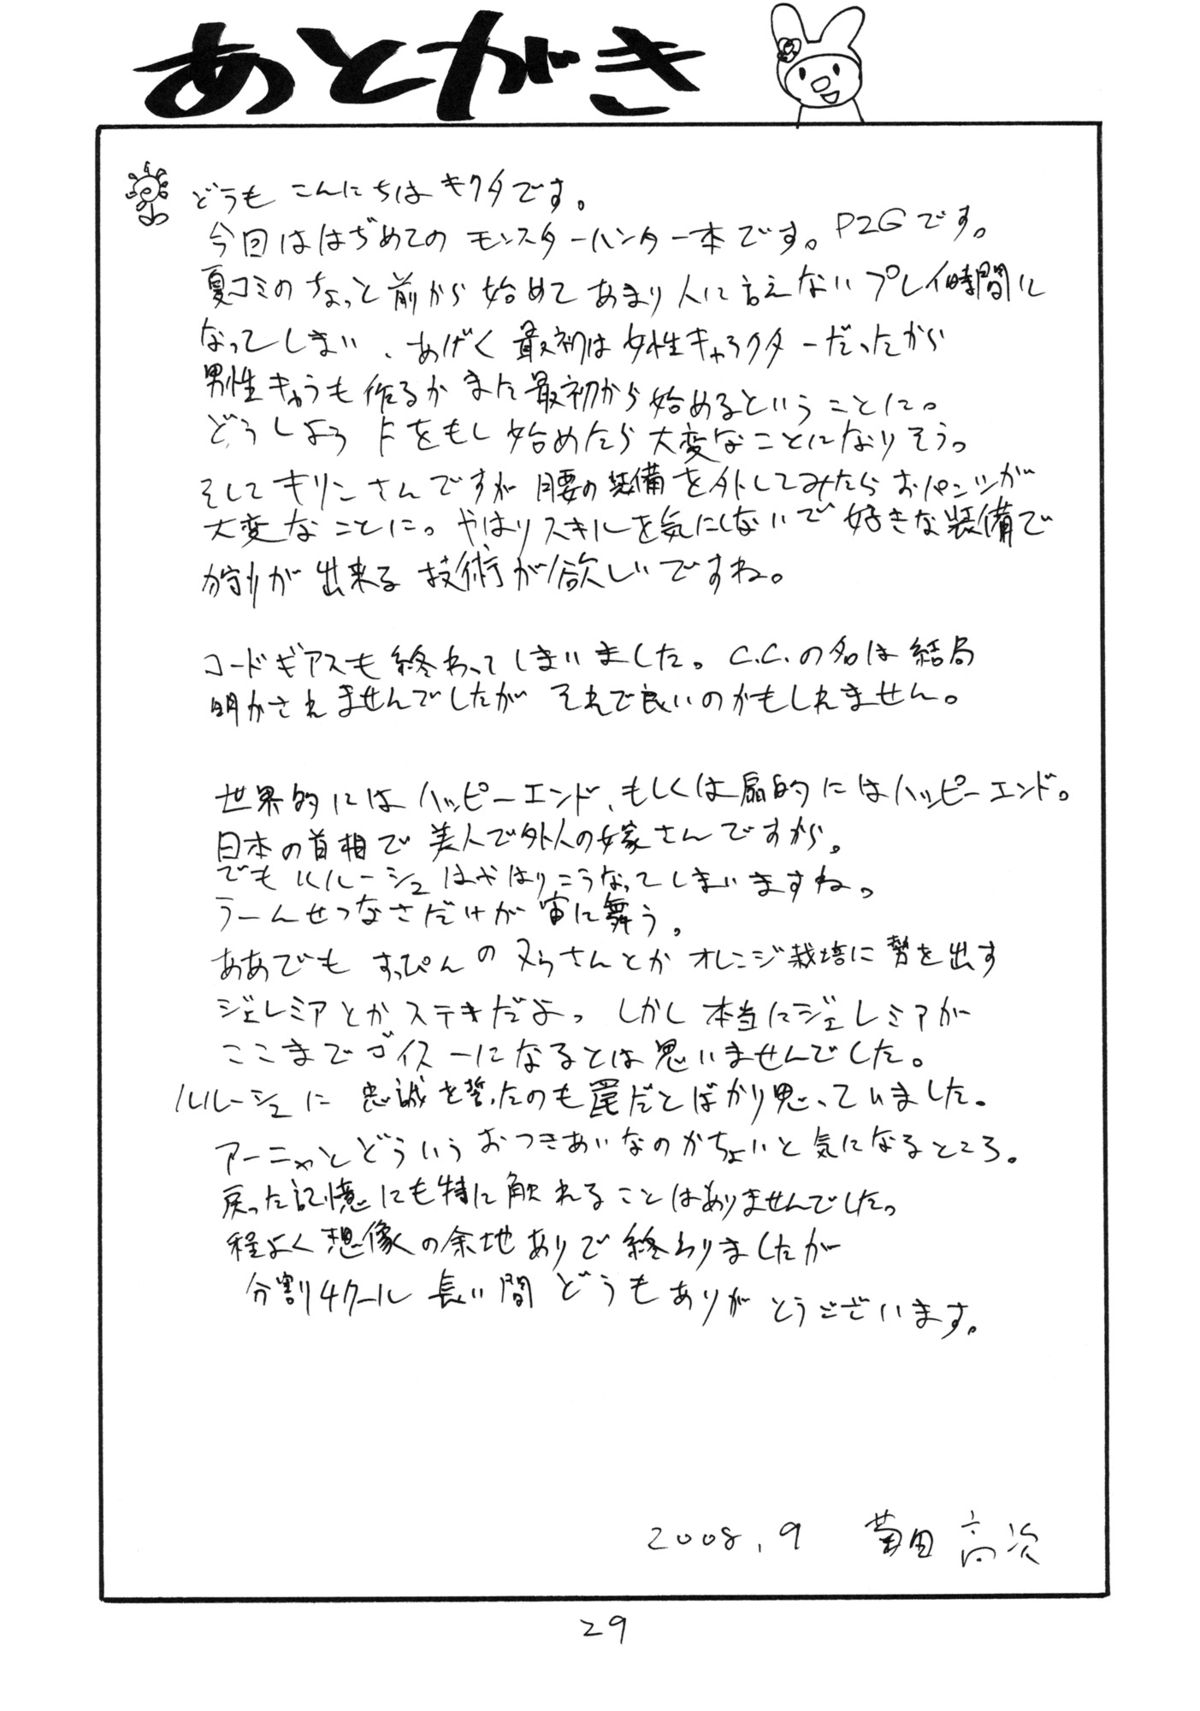 あとがき
どうも こんにちは キクタです。
今回ははぢめての モンスターハンター本です。P2Gです。
夏コミのちょっと前から始めて あまり人に言えない プレイ時間に
なってしまい、あげく 最初は女性キャラクターだったから
男性キャラも作るか また最初から始めるということに。
どうしよう Fをもし始めたら大変なことになりそうっ
そしてキリンさんですが 腰の装備を外してみたらおパンツが
大変なことに。やはりスキルを気にしないで好きな装備で
狩りが出来る技術が欲しいですね。
コードギアスも終わってしまいました。C.C.の名は結局
明かされませんでしたが それで良いのかもしれません。
世界的にはハッピーエンド、もしくは扇的にはハッピーエンド。
日本の首相で美人で外人の嫁さんですから。
でもルルーシュはやはりこうなってしまいますね。
うーんせつなさだけが宙に舞う。
ああでも すっぴんのヌゥさんとか オレンジ栽培に勢を出す
ジェレミアとかステキだよっ しかし本当にジェレミアが
ここまでゴイスーになるとは思いませんでした。
ルルーシュに 忠誠を誓ったのも罠だとばかり思っていました。
アーニャとどういうおつきあいなのかちょいと気になるところ。
戻った記憶にも特に触れることはありませんでした。
程よく想像の余地ありで終わりましたが
分割4クール 長い間 どうもありがとうございます。
2008.9 菊田高次
29